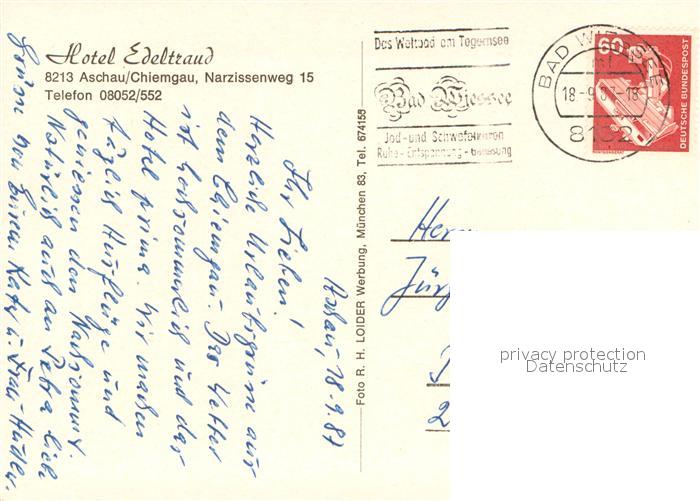 Hotel Edeltraud
8213 Aschau/Chiemgau, Narzissenweg 15
Telefon 08052/552
Das Weltbad am Tegernsee
Bad Wiessee
Jod- und Schwefelthermen
Ruhe - Entspannung - Genesung
BAD WIESSEE
18-9.87-18
8182
60
DEUTSCHE BUNDESPOST
Foto R. H. LOIDER Werbung, München 83, Tel. 674155
Aschau, 18-9.87
Ihr Lieben!
Herzliche Urlaubsgrüsse aus
dem Chiemgau. Das Wetter
ist hochsommerlich und das
Hotel prima. Wir machen
täglich Ausflüge und
geniessen den Nachsommer.
Natürlich auch an Petra liebe
Grüsse von Eurem
Herrn
privacy protection
Datenschutz